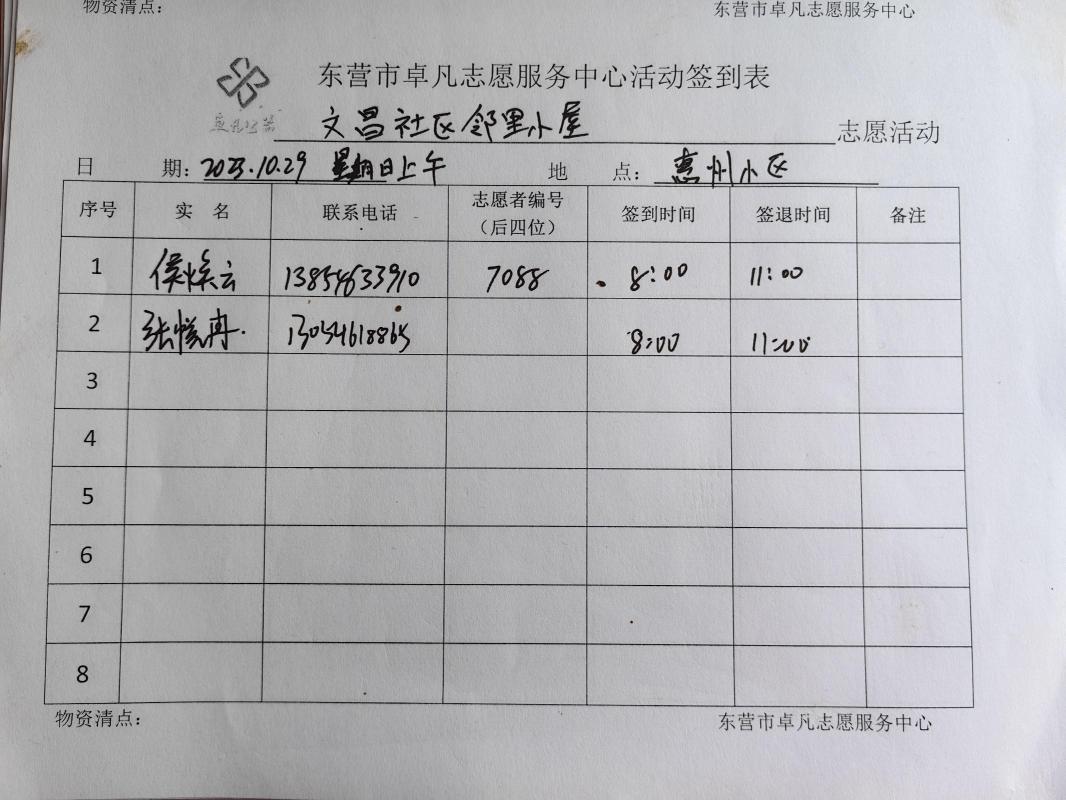 物资清点： 东营市卓凡志愿服务中心
东营市卓凡志愿服务中心活动签到表
文昌社区邻里小屋 志愿活动
日 期：2023.10.29 星期日上午 地 点：惠州小区
序号 实 名 联系电话 志愿者编号（后四位） 签到时间 签退时间 备注
1 侯焕云 13854633910 7088 8:00 11:00
2 张悦冉 13054618865 8:00 11:00
3
4
5
6
7
8
物资清点： 东营市卓凡志愿服务中心